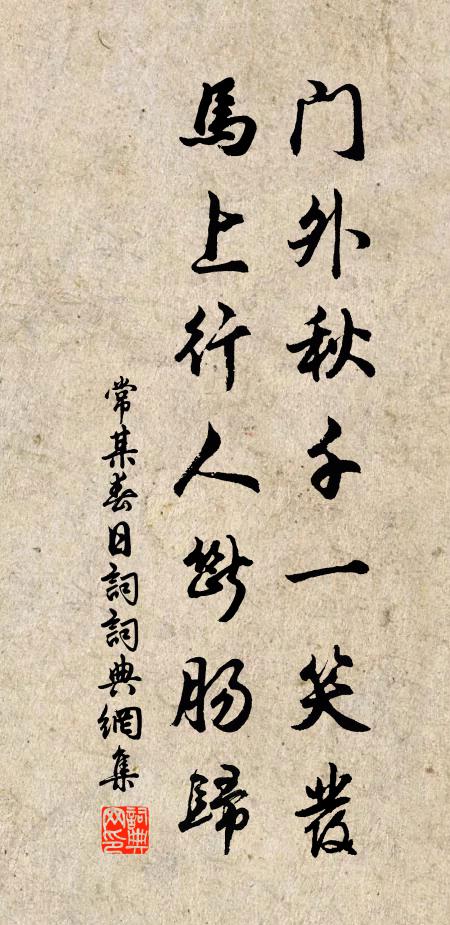 門外秋千一笑發
馬上行人斷腸歸
常某春日詞詞典網集
詞典網印